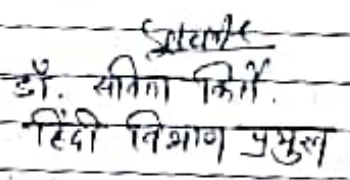 डॉ. सविता किर्ते.
हिंदी विभाग प्रमुख